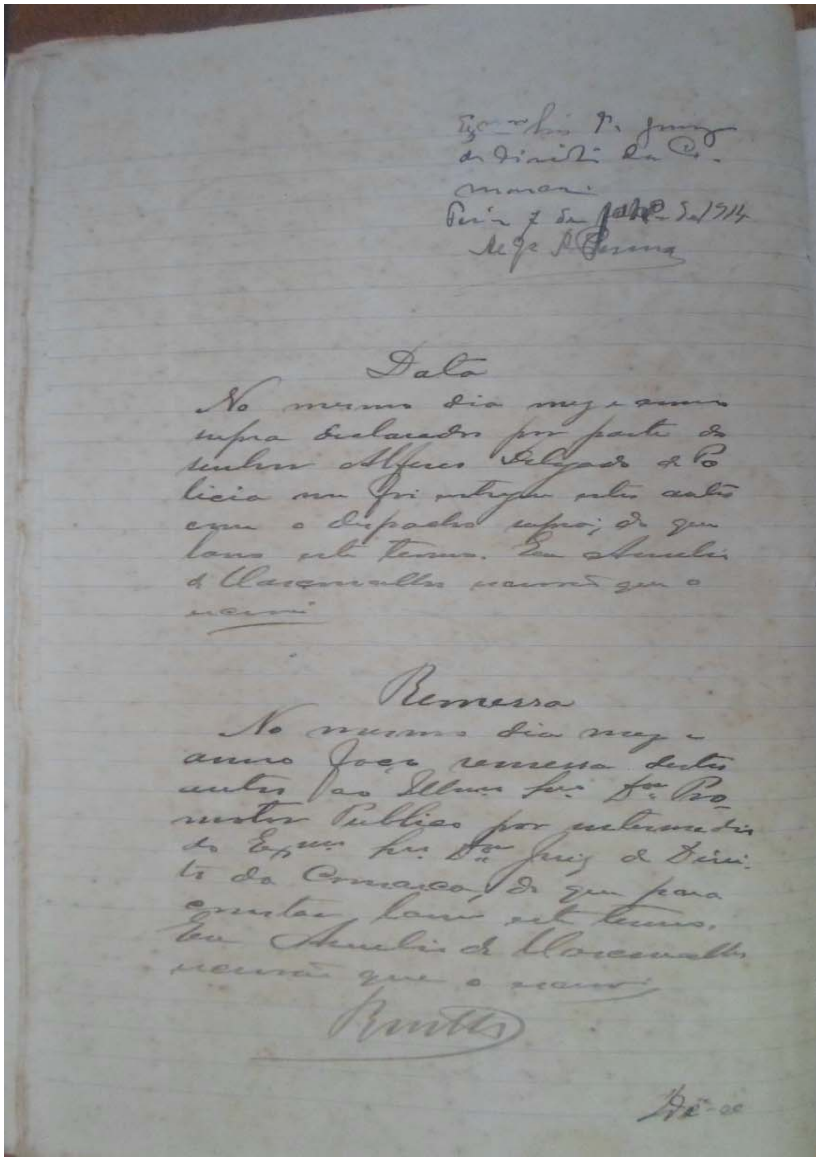 Exmo Snr Dr. Juiz
de Direito da Co-
marca.
7 de de 1914
Data
No mesmo dia mez e anno
supra declarados por parte do
senhor Alferes Delegado de Po
licia me foi entregue estes autos
com o despacho supra; do que
lavro este termo. Eu Aurelio
de Vasconcellos escrivão que o
escrevi
Remessa
No mesmo dia mez e
anno faço remessa destes
autos ao Illmo Snr. Dor Pro-
motor Publico por intermedio
do Exmo Snr. Dor Juiz de Direi-
to da Comarca, do que para
constar lavro este termo.
Eu Aurelio de Vasconcellos
escrivão que o escrevi